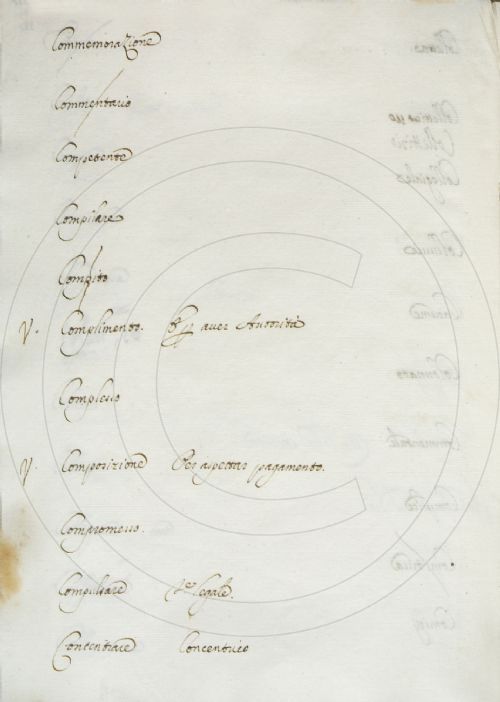 Commemorazione
Commentario
Competente
Compilare
Compito
V. Complimento. aver Autorità
Complesso
V. Composizione Per aspettar pagamento.
Compromesso.
Compulsare Legale.
Concentrare Concentrico